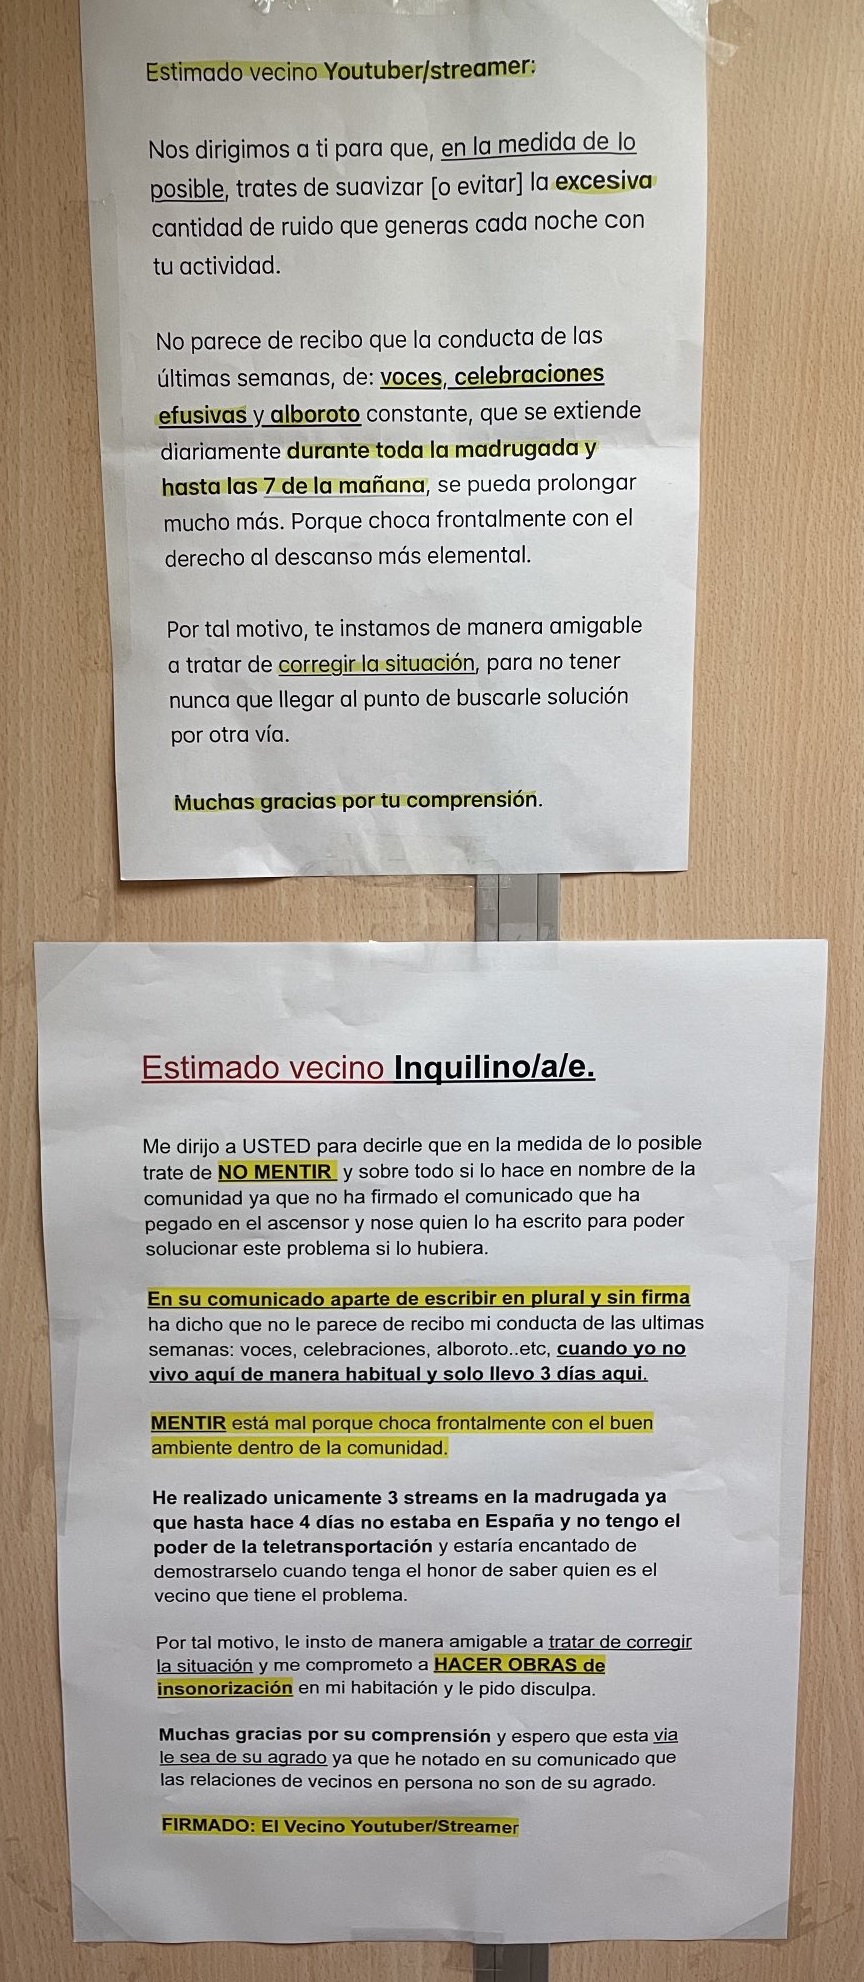 Estimado vecino Youtuber/streamer:
Nos dirigimos a ti para que, en la medida de lo
posible, trates de suavizar [o evitar] la excesiva
cantidad de ruido que generas cada noche con
tu actividad.
No parece de recibo que la conducta de las
últimas semanas, de: voces, celebraciones
efusivas y alboroto constante, que se extiende
diariamente durante toda la madrugada y
hasta las 7 de la mañana, se pueda prolongar
mucho más. Porque choca frontalmente con el
derecho al descanso más elemental.
Por tal motivo, te instamos de manera amigable
a tratar de corregir la situación, para no tener
nunca que llegar al punto de buscarle solución
por otra vía.
Muchas gracias por tu comprensión.
Estimado vecino Inquilino/a/e.
Me dirijo a USTED para decirle que en la medida de lo posible
trate de NO MENTIR y sobre todo si lo hace en nombre de la
comunidad ya que no ha firmado el comunicado que ha
pegado en el ascensor y nose quien lo ha escrito para poder
solucionar este problema si lo hubiera.
En su comunicado aparte de escribir en plural y sin firma
ha dicho que no le parece de recibo mi conducta de las ultimas
semanas: voces, celebraciones, alboroto..etc, cuando yo no
vivo aquí de manera habitual y solo llevo 3 días aqui.
MENTIR está mal porque choca frontalmente con el buen
ambiente dentro de la comunidad.
He realizado unicamente 3 streams en la madrugada ya
que hasta hace 4 días no estaba en España y no tengo el
poder de la teletransportación y estaría encantado de
demostrarselo cuando tenga el honor de saber quien es el
vecino que tiene el problema.
Por tal motivo, le insto de manera amigable a tratar de corregir
la situación y me comprometo a HACER OBRAS de
insonorización en mi habitación y le pido disculpa.
Muchas gracias por su comprensión y espero que esta via
le sea de su agrado ya que he notado en su comunicado que
las relaciones de vecinos en persona no son de su agrado.
FIRMADO: El Vecino Youtuber/Streamer